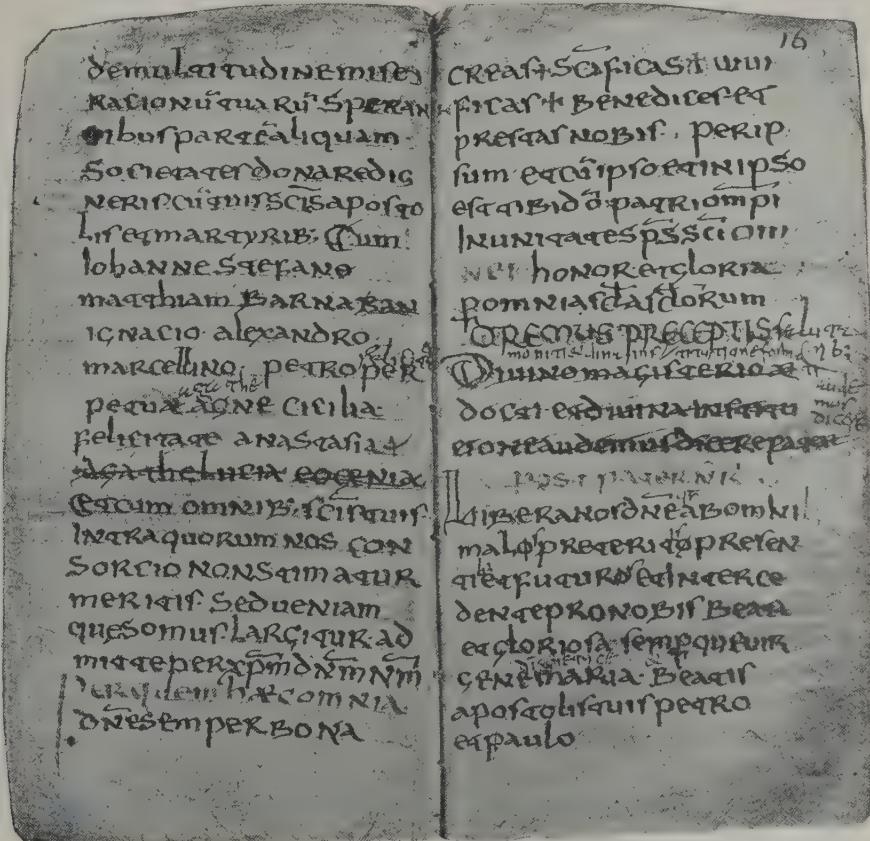 demultitudinemise
racionū tuarū speran
tibus partē aliquam
Societates donaredig
neris cū tuis sc̄is aposto
lis et martyrib; Cum
Iohanne Stefano
matthiam Barnaban
ignacio alexandro
marcellino petro per
petua agne cicilia
felicitate anastasia
agathe lucia eogenia
et cum omnib; sc̄is tuis
Intra quorum nos con
sorcio non stimatur
meritis sed ueniam
quesomus largitur ad
mitte per xp̄m dn̄m nm̄
per quem hæc omnia
dn̄e semper bona
16
creas + sc̄ificas + uiui
ficas + benedices et
prestas nobis. per ip
sum et cū ipso et in ipso
est tibi dō patri omp̄i
In unitates sp̄s sc̄i om
honor et gloria
p omnia sc̄la sc̄lorum
OREMUS PRECEPTIS
Diuino magisterio
docti et diuina institu
tione audemus dicere pater
post pater nr̄
Libera nos dn̄e ab omni
malo preterito presen
ti et futuro et interce
dente pro nobis beata
et gloriosa semp que uir
gene maria beatis
apostolis tuis petro
et paulo